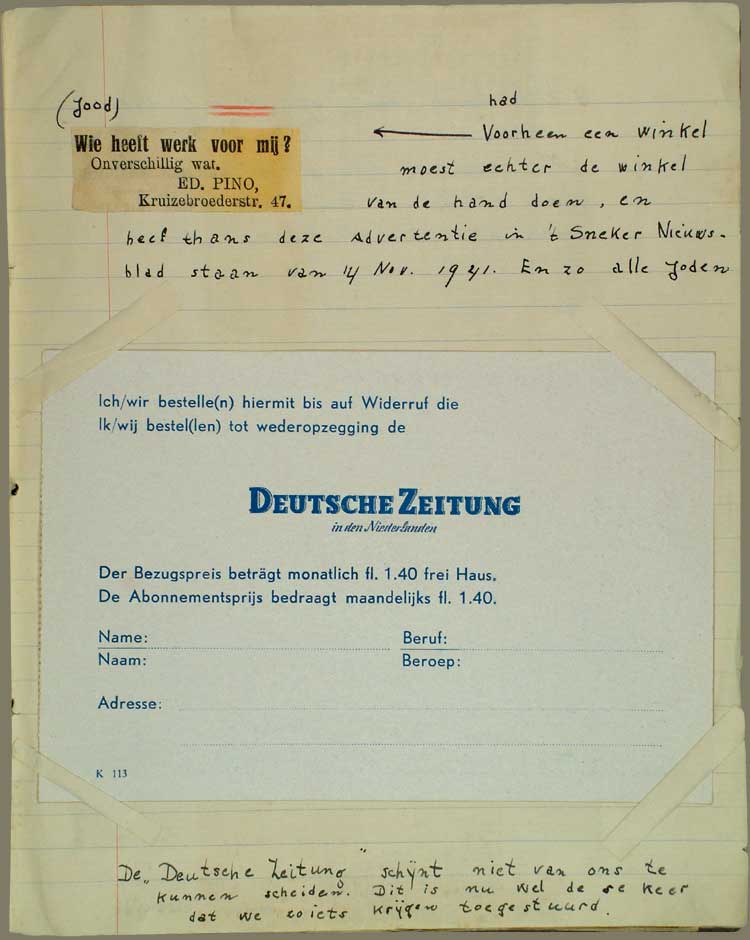 (Jood)
Wie heeft werk voor mij?
Onverschillig wat.
ED. PINO,
Kruizebroederstr. 47.
had
Voorheen een winkel
moest echter de winkel
van de hand doen, en
heef thans deze Advertentie in 't Sneker Nieuws-
blad staan van 14 Nov. 1941. En zo alle Joden
Ich/wir bestelle(n) hiermit bis auf Widerruf die
Ik/wij bestel(len) tot wederopzegging de
DEUTSCHE ZEITUNG
in den Niederlanden
Der Bezugspreis beträgt monatlich fl. 1.40 frei Haus.
De Abonnementsprijs bedraagt maandelijks fl. 1.40.
Name:
Beruf:
Naam:
Beroep:
Adresse:
K 113
De „Deutsche Zeitung" schijnt niet van ons te
kunnen scheiden. Dit is nu wel de keer
dat we zoiets krijgen toegestuurd.